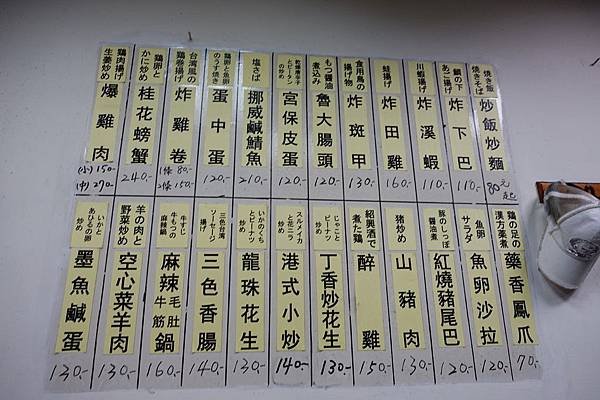 焼き飯
焼きそば
炒飯炒麵
80元起
鯛の下
あご揚げ
炸下巴
110.-
川蝦揚げ
炸溪蝦
110.-
蛙揚げ
炸田雞
160.-
食用鳥の
揚げ物
炸斑甲
130.-
もつ醤油
煮込み
魯大腸頭
120.-
乾燥唐辛子
とピータン
の炒め
宮保皮蛋
120.-
塩さば
挪威鹹鯖魚
210.-
鶏卵と魚卵
のうす焼き
蛋中蛋
120.-
台湾風の
鶏巻揚げ
炸雞卷
1條 80.-
2條 150.-
鶏卵と
かに炒め
桂花螃蟹
240.-
鶏肉揚げ
生姜炒め
爆雞肉
(小) 150.-
(中) 270.-
鶏の足の
漢方薬煮
藥香鳳爪
70.-
魚卵
サラダ
魚卵沙拉
120.-
豚のしっぽ
醤油煮
紅燒豬尾巴
120.-
猪炒め
山豬肉
130.-
紹興酒で
煮た鶏
醉雞
150.-
じゃこと
ピーナツ
炒め
丁香炒花生
130.-
スルメイカ
と花ニラ
炒め
港式小炒
140.-
いかのくち
とピーナツ
炒め
龍珠花生
130.-
三色台湾
ソーセージ
揚げ
三色香腸
140.-
牛すじ
牛もつの
麻辣鍋
麻辣毛肚牛筋鍋
160.-
羊の肉と
野菜炒め
空心菜羊肉
130.-
いかと
あひるの卵
炒め
墨魚鹹蛋
130.-